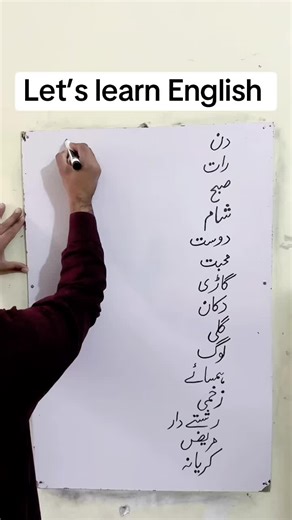 Let's learn English
دن
رات
صبح
شام
دوست
محبت
گاڑی
دکان
گلی
لوگ
ہمسائے
زخمی
رشتے دار
مریض
کریانہ